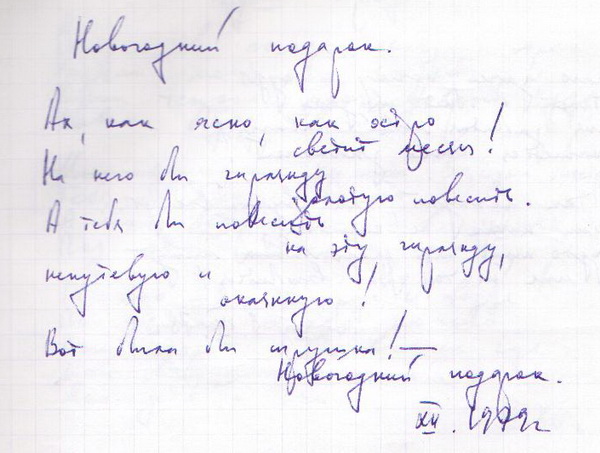 Новогодний подарок.
Ах, как ясно, как остро
светит месяц!
На него бы гирлянду
золотую повесить.
А тебя бы повесить
на эту гирлянду,
непутевую и
окаянную!
Вот была бы игрушка! —
Новогодний подарок.
XII. 1979г